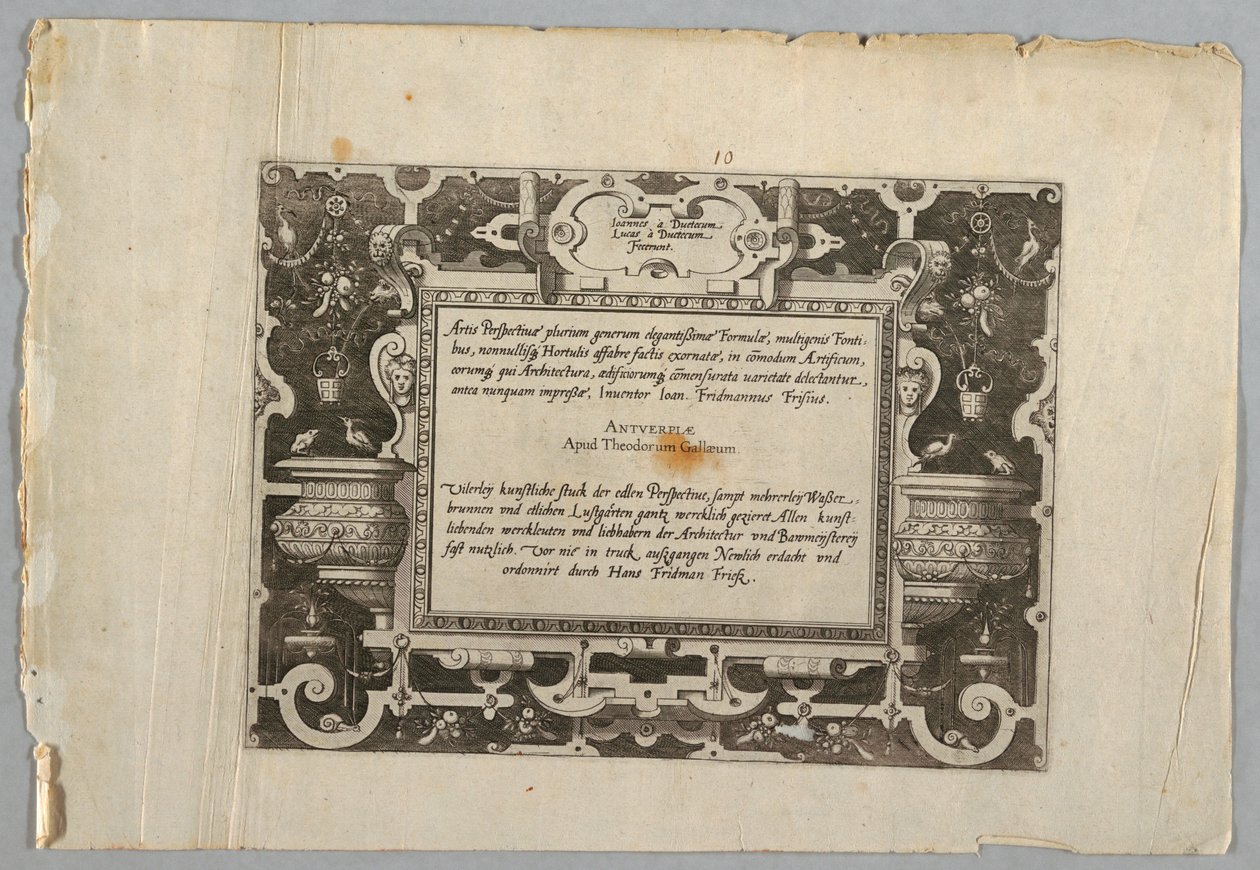 10
Ioannes à Duetecum
Lucas à Duetecum
Fecerunt.
Artis Perspectiuæ plurium generum elegantißimæ Formulæ, multigenis Fonti-
bus, nonnullisq; Hortulis affabre factis exornatæ, in cōmodum Artificum,
eorumq; qui Architectura, ædificiorumq; cōmensurata uarietate delectantur,
antea nunquam impreßæ, Inuentor Ioan. Fridmannus Frisius.
ANTVERPIÆ
Apud Theodorum Gallæum.
Vilerleÿ kunstliche stuck der edlen Perspectiue, sampt mehrerleÿ Waßer-
brunnen vnd etlichen Lustgärten gantz wercklich gezieret Allen kunst-
liebenden werckleuten vnd liebhabern der Architectur vnd Bawmeÿstereÿ
fast nutzlich. Vor nie in truck außgangen Newlich erdacht vnd
ordonnirt durch Hans Fridman Frieß.